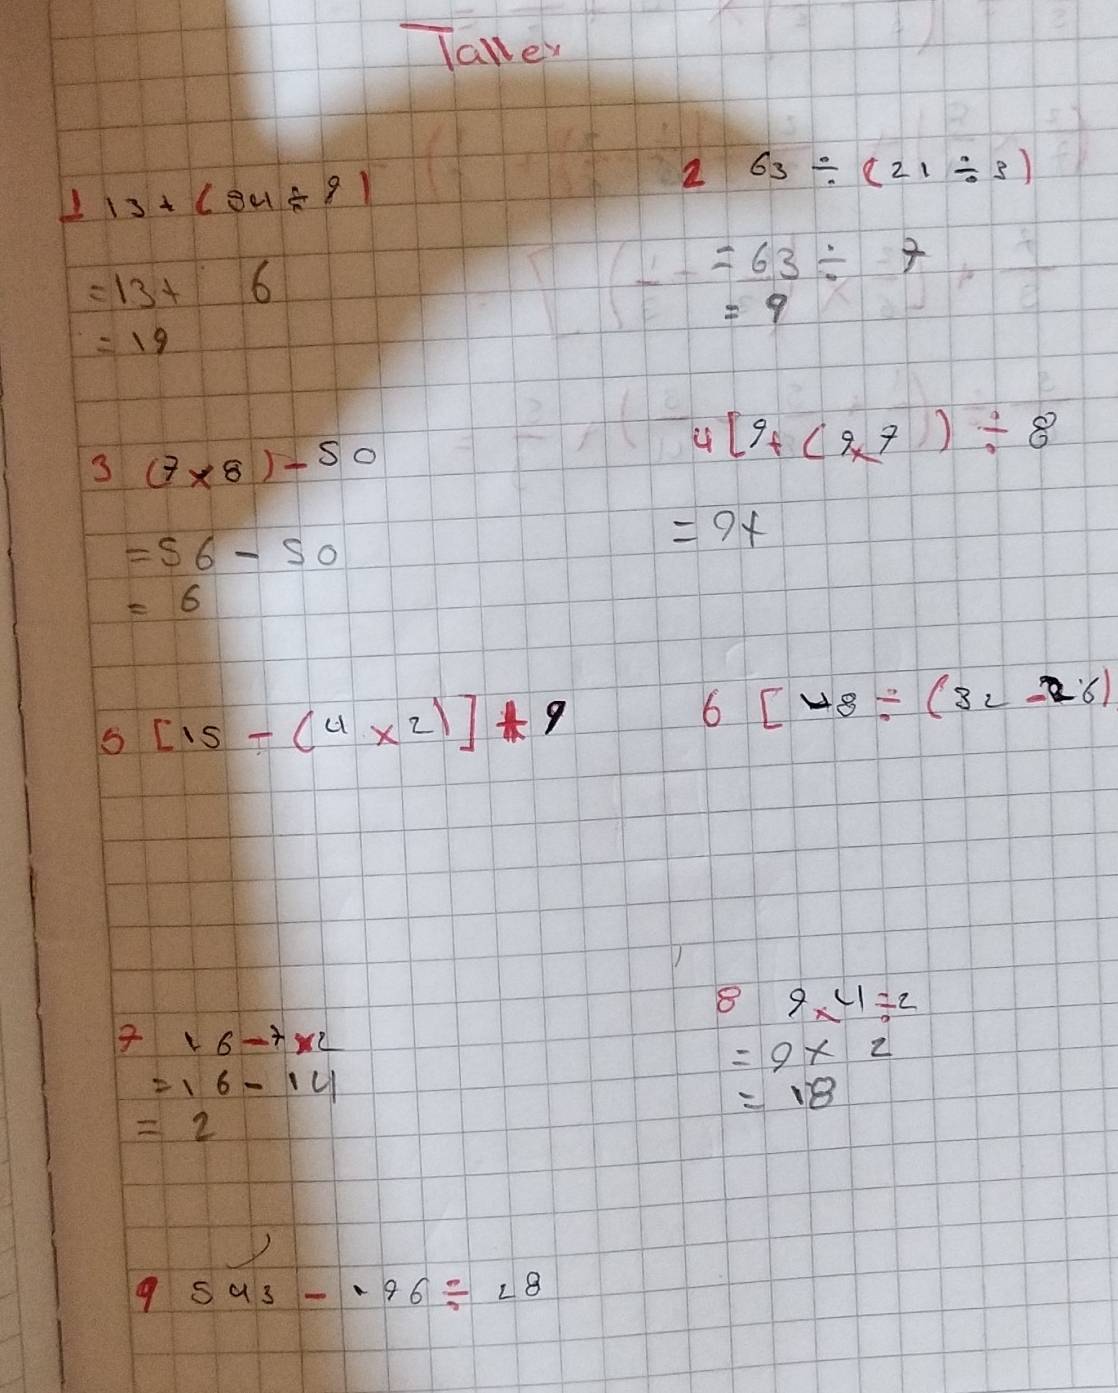 Taller
1 13 + (54 ÷ 9)
= 13 + 6
= 19
2 63 ÷ (21 ÷ 3)
= 63 ÷ 7
= 9
3 (7 × 8) - 50
= 56 - 50
= 6
4 [9 + (9 × 7) ÷ 8
= 9 +
5 [15 - (4 × 2)] + 9
6 [48 ÷ (32 - 26)
7 16 - 7 × 2
= 16 - 14
= 2
8 9 × 4 ÷ 2
= 9 × 2
= 18
9 543 - 196 ÷ 28